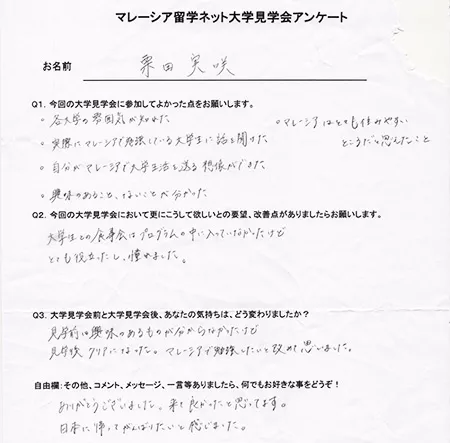 マレーシア留学ネット大学見学会アンケート
お名前 栗田 実咲
Q1. 今回の大学見学会に参加してよかった点をお願いします。
・各大学の雰囲気が知れた
・実際にマレーシアで勉強している大学生に話を聞けた
・自分がマレーシアで大学生活を送る想像ができた
・興味のあること、ないことが分かった
・マレーシアはとても住みやすい
ところだと思えたこと
Q2. 今回の大学見学会において更にこうして欲しいとの要望、改善点がありましたらお願いします。
大学生との食事会はプログラムの中に入っていなかったけど
とても役立ったし、憧れました。
Q3. 大学見学会前と大学見学会後、あなたの気持ちは、どう変わりましたか？
見学前は興味のあるものが分からなかったけど
見学後クリアになった。マレーシアで勉強したいと改めて思いました。
自由欄：その他、コメント、メッセージ、一言等ありましたら、何でもお好きな事をどうぞ！
ありがとうございました。来て良かったと思ってます。
日本に帰ってがんばりたいと感じました。